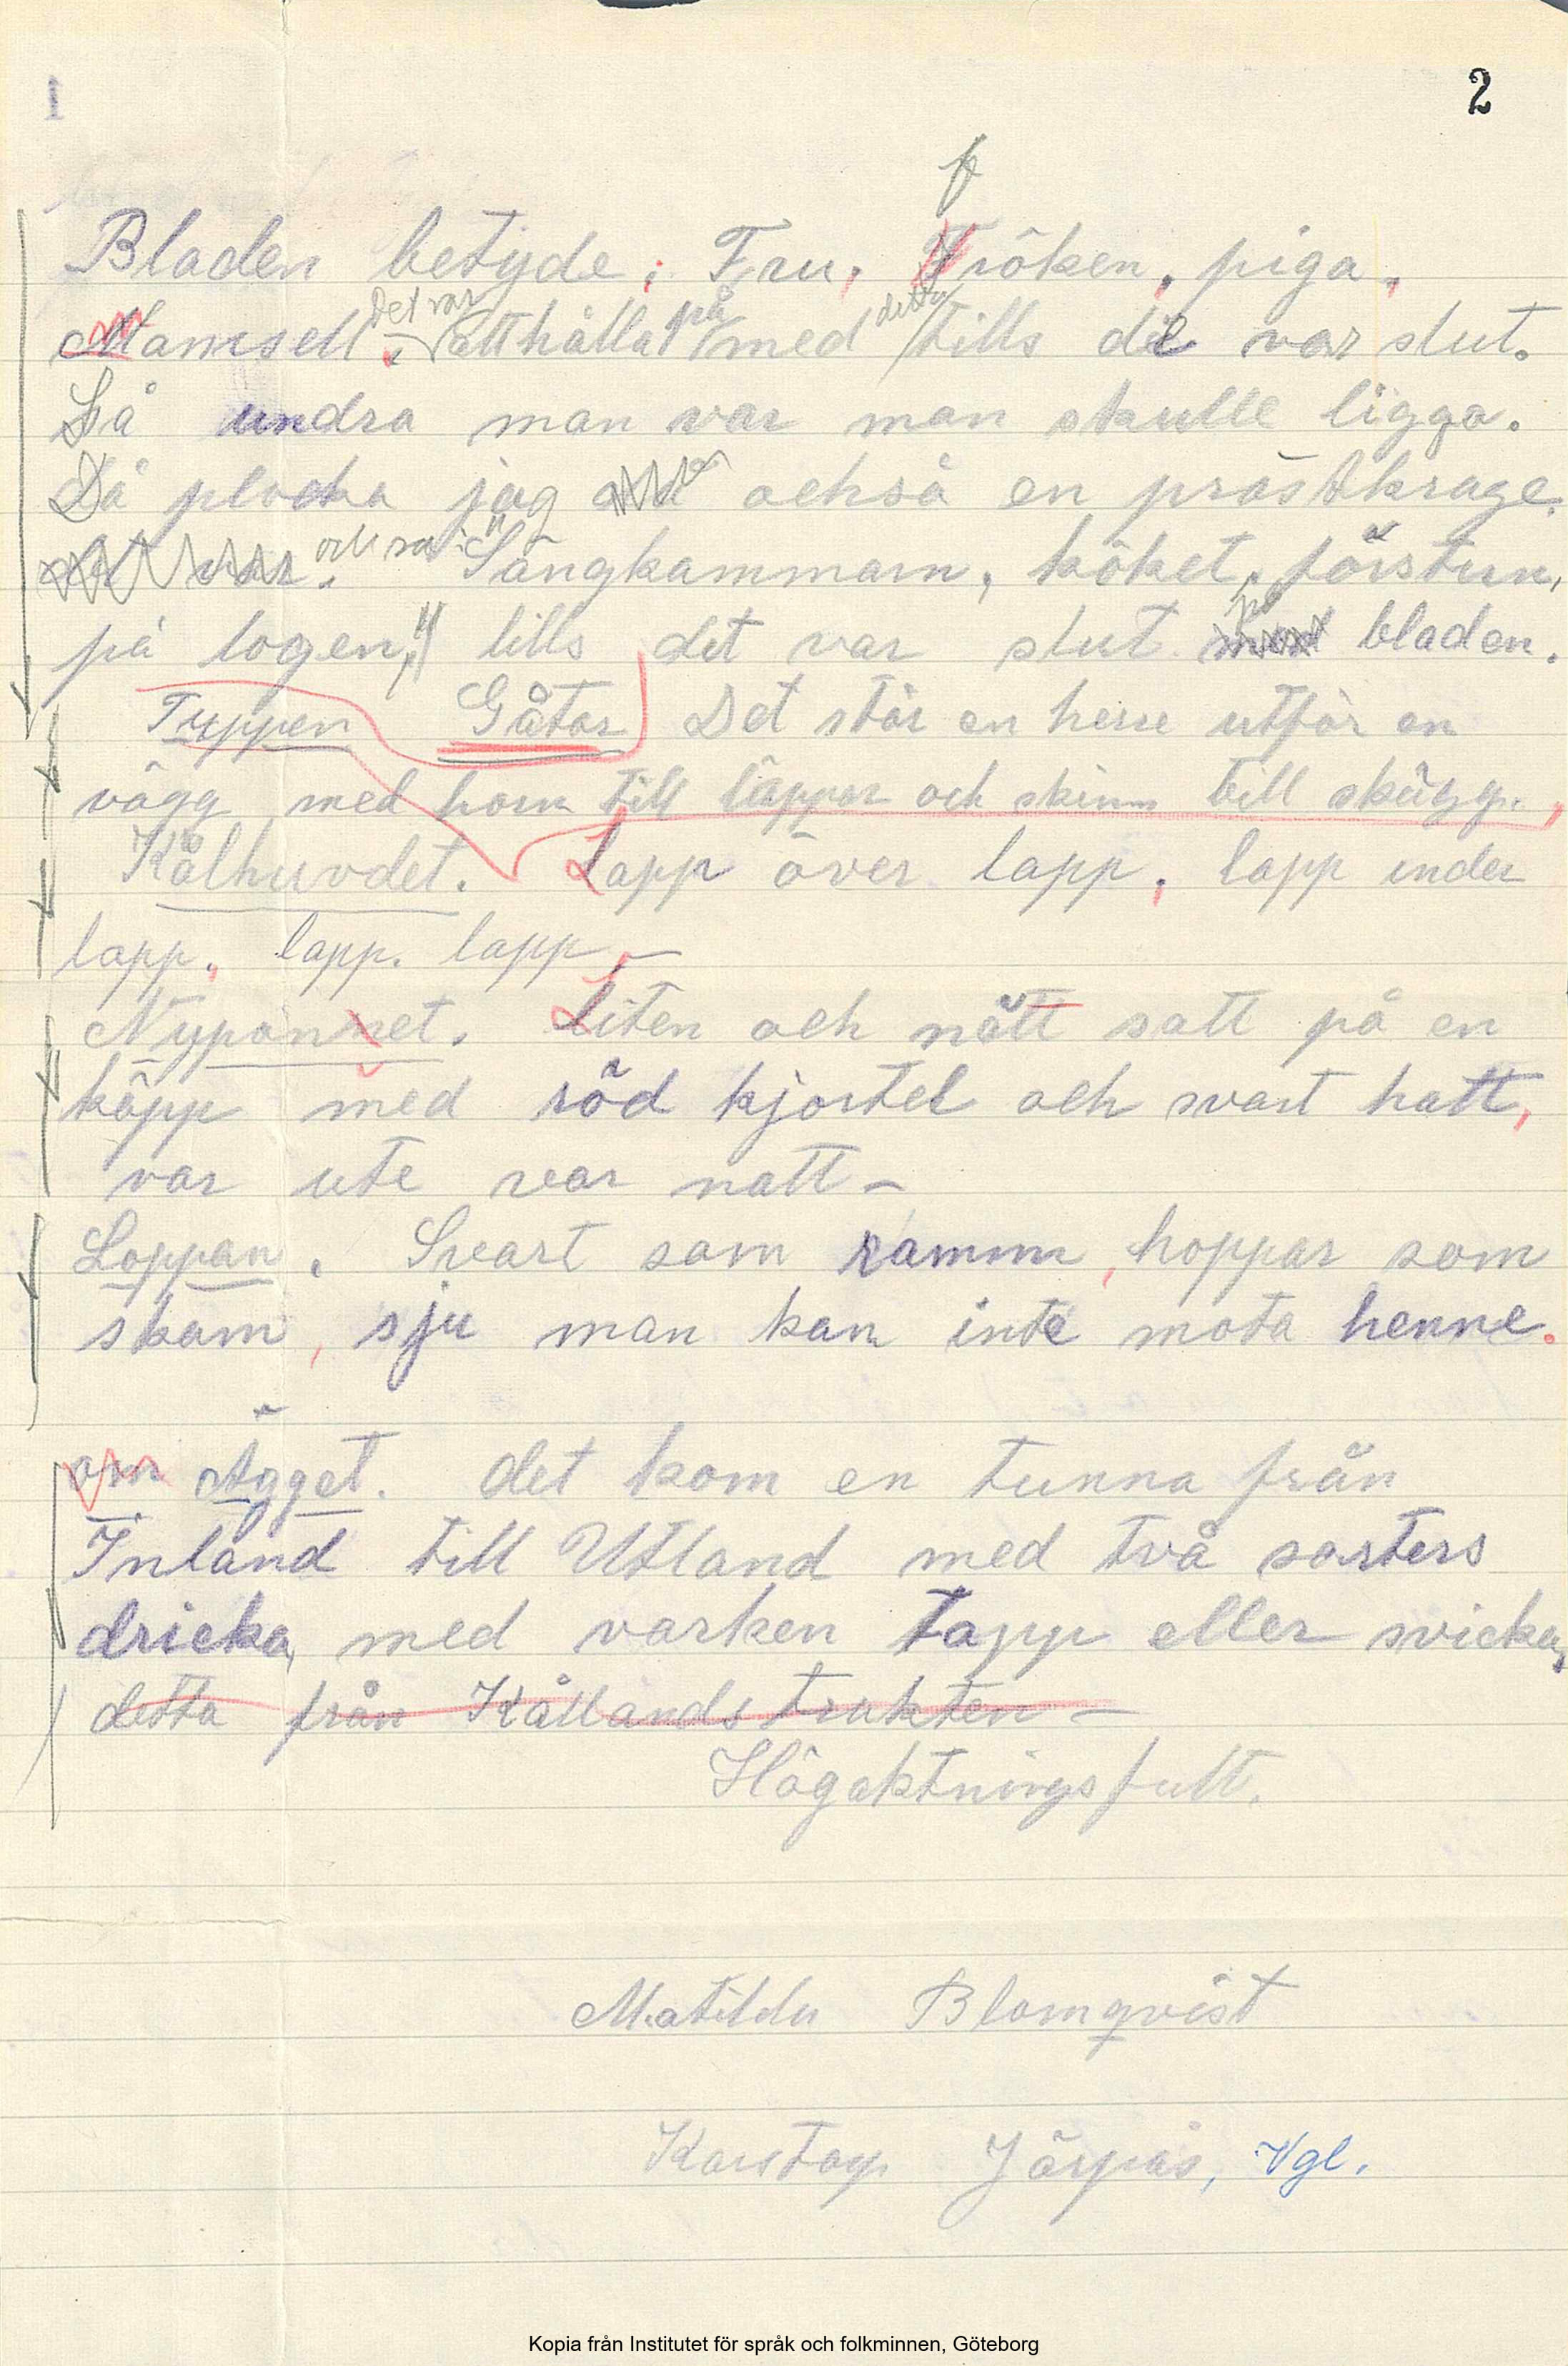 1
2
f
Bladen betyde: Fru, Fröken, piga,
det var på detta
Mamsell, att hålla med tills de var slut.
Så undra man var man skulle ligga.
Då plocka jag också en prästkrage.
och sa: "Sängkammarn, köket, förstun,
på logen," tills det var slut på bladen.
Tuppen Gåtor Det står en herre utför en
vägg med horn till läppar och skinn till skägg.
Kålhuvdet. Lapp över lapp, lapp under
lapp, lapp. lapp –
Nyponnet. Liten och nätt satt på en
käpp med röd kjortel och svart hatt,
var ute var natt –
Loppan. Svart som ramm, hoppar som
skam, sju man kan inte mota henne.
om Ägget. det kom en tunna från
Inland till Utland med två sorters
dricka, med varken tapp eller svicka,
detta från Kållandstrakten –
Högaktningsfullt.
Matilda Blomqvist
Karstorp Järpås, Vgl.
Kopia från Institutet för språk och folkminnen, Göteborg